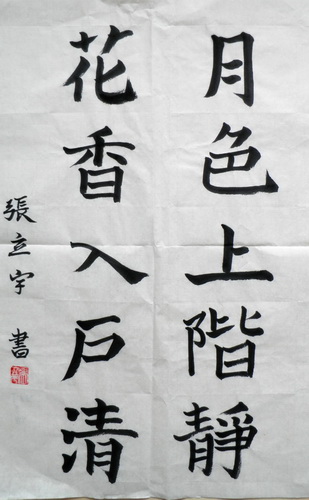 月色上階靜
花香入戶清
張立宇 書